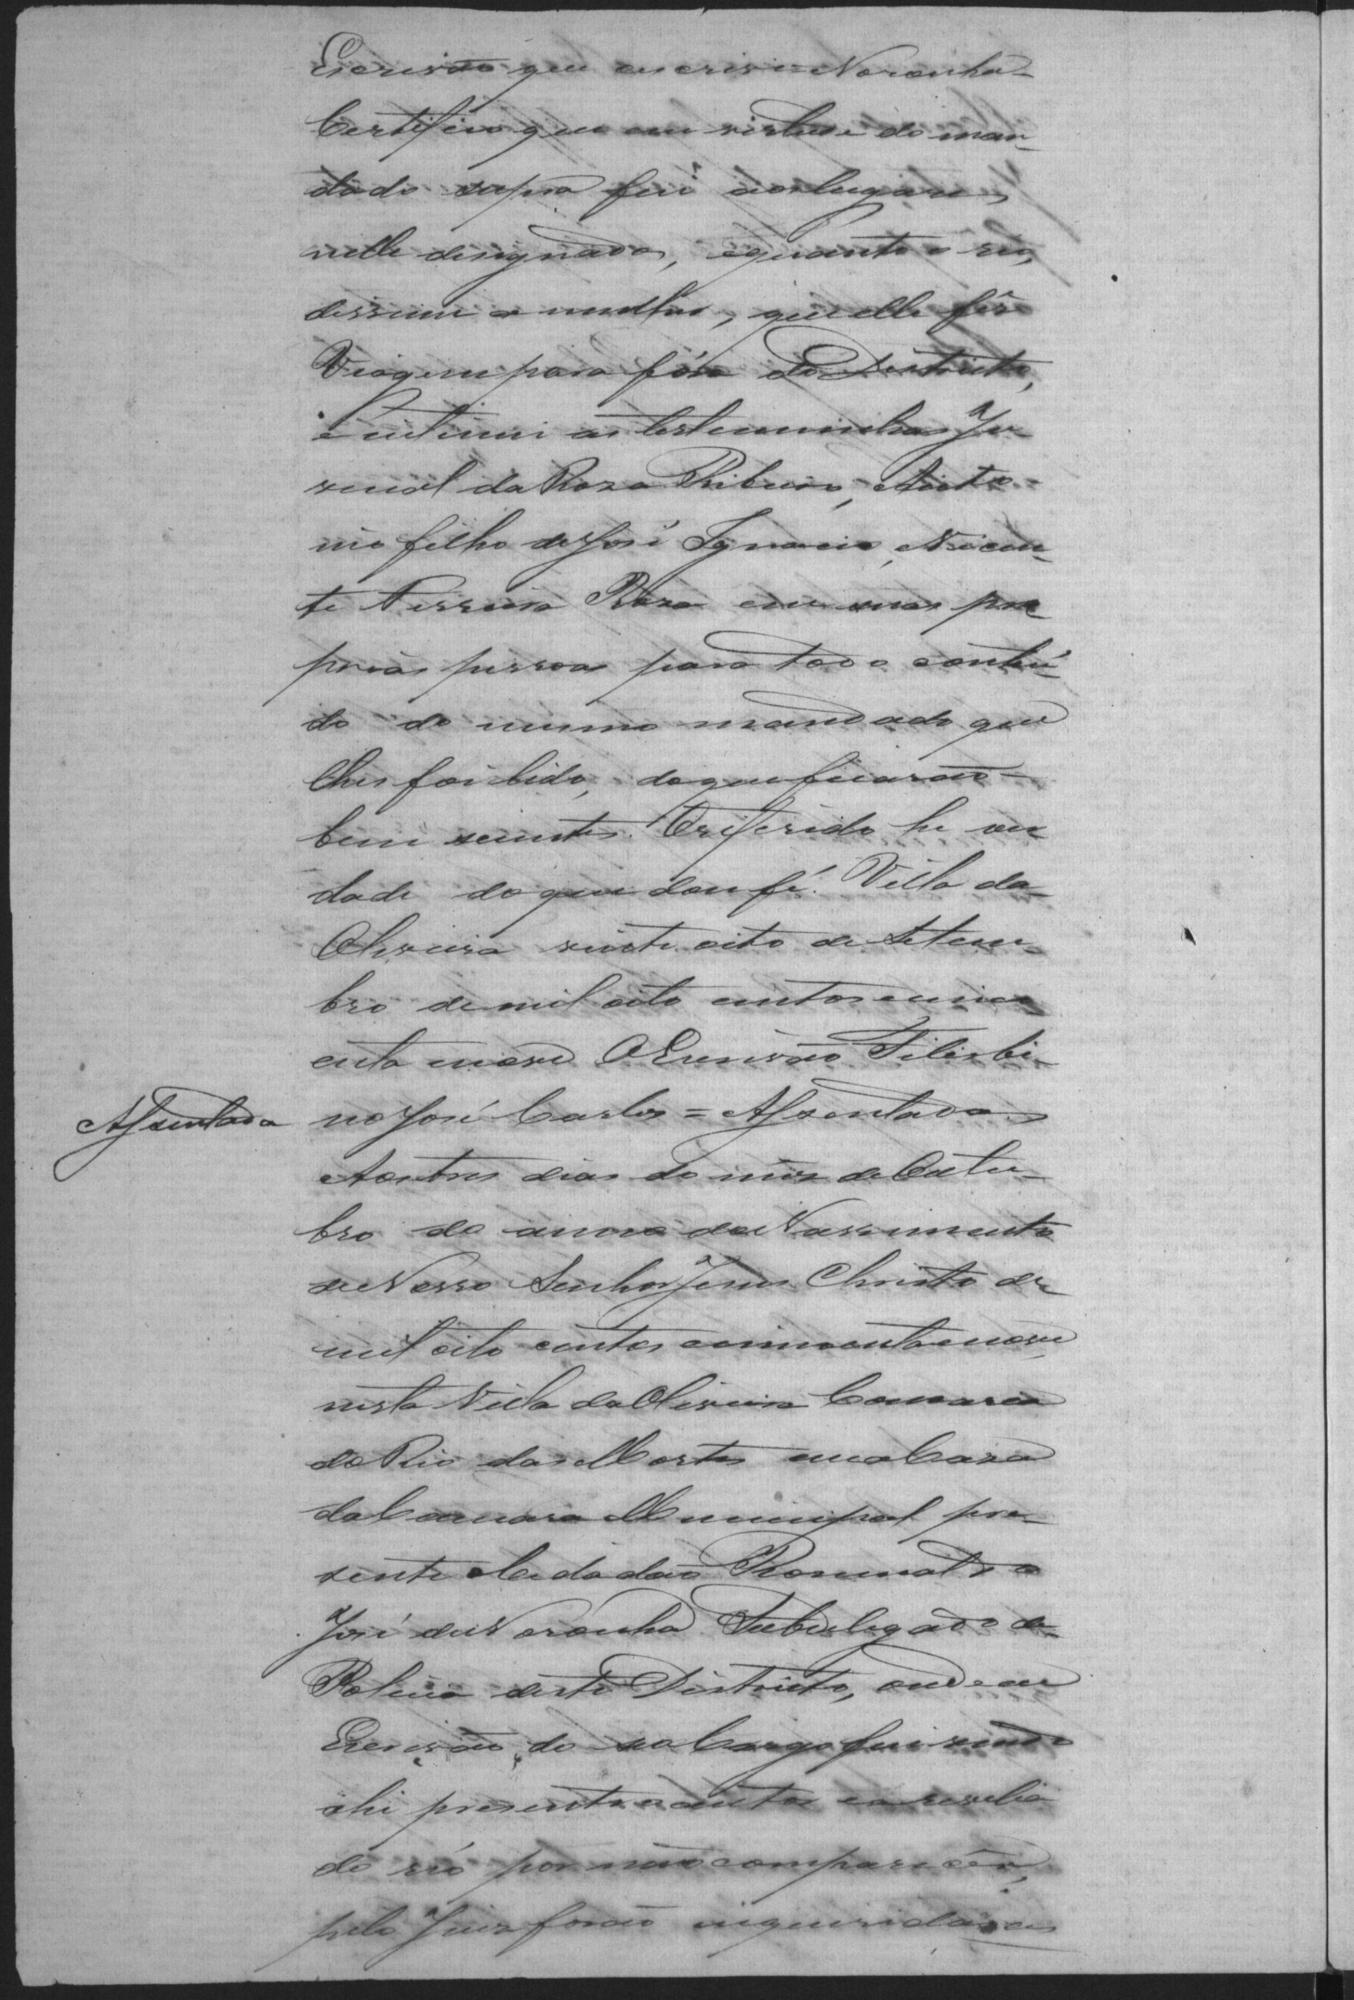 Escrivão que escrevi = Noronha =
Certifico que em virtude do man-
dado supra fui aos lugares
nelle designados, e quanto o réo,
disseme a mulher, que elle fes
Viagem para fóra do Destricto,
e intimei as testemunhas Ju-
venal da Roza Ribeiro, Anto-
nio filho de José Ignacio, Vicen-
te Ferreira Roza em suas pro
prias pessoas para todo o conteú-
do do mesmo mandado que
lhes foi lido, do que ficarão
bem scientes. O referido he ver
dade do que dou fé. Villa da
Oliveira vinte oito de Setem-
bro de mil oito centos e cinco
enta nove O Escrivão Filisbi-
no José Carlos = Assentada
Assentada
Aos tres dias do mez de Outu-
bro do anno do Nascimento
de Nosso Senhor Jesus Christo de
mil oito centos cincoenta e nove,
nesta Villa da Oliveira Comarca
do Rio das Mortes em a Caza
da Camara Municipal pre-
zente o Cidadão
José de Noronha Subdelegado de
Policia deste Destricto, onde eu
Escrivão do seo Cargo fui vindo
ahi presente o autor e a revelia
do réo por não comparecer,
pelo Juiz forão inqueridas as